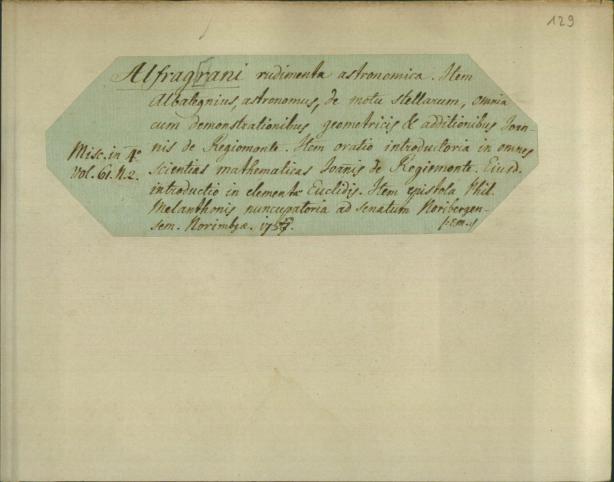 129
Alfrag[rani rudimenta astronomica. Item
Albategnius, astronomus, de motu stellarum, omnia
cum demonstrationibus geometricis & additionibus Joan-
nis de Regiomonte. Item oratio introductoria in omnes
Misc. in 4o scientias mathematicas Joannis de Regiomonte. Eiusd.
Vol. 61. N.2. introductio in elementa Euclidis. Item epistola Phil.
Melanthonis nuncupatoria ad senatum Noribergen-
sem. Norimbgæ.